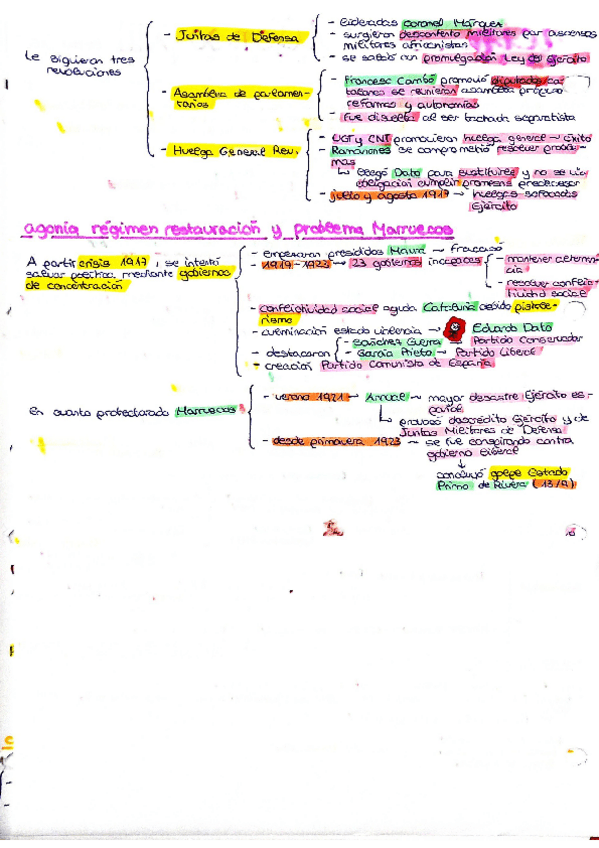 - lideradas coronel Márquez
- Juntas de Defensa
- surgieron descontento militares por ascensos
militares africanistas
- se saldó con promulgación Ley de Ejército
Le siguieron tres
revoluciones
- Francesc Cambó promovió diputados ca-
talanes se reunieran asamblea propuso
reformas y autonomías
- Asamblea de parlamen-
tarios
- fue disuelta al ser tachada separatista
- UGT y CNT promovieron huelga general → éxito
- Huelga General Rev.
- Romanones se comprometió resolver proble-
mas
↳ llegó Dato para sustituirle y no se vio
obligación cumplir promesa predecesor
- julio y agosto 1917 → huelgas sofocadas
Ejército
agonía régimen restauración y problema Marruecos
A partir crisis 1917, se intentó
salvar política mediante gobiernos
de concentración
- empezaron presididos Maura → Fracasó
- 1917-1923 → 23 gobiernos incapaces
- mantener
- resolver conflic-
tividad social
- conflictividad social aguda Cataluña debido pistole-
rismo
- culminación estado violencia → Eduardo Dato
- destacaron
- Sánchez Guerra → Partido Conservador
- García Prieto → Partido Liberal
- creación Partido Comunista de España
En cuanto protectorado Marruecos
- verano 1921 → Annual → mayor desastre Ejército es-
pañol
↳ provocó descrédito Ejército y de
Juntas Militares de Defensa
- desde primavera 1923 → se fue conspirando contra
gobierno liberal
↓
concluyó golpe Estado
Primo de Rivera (13/9)